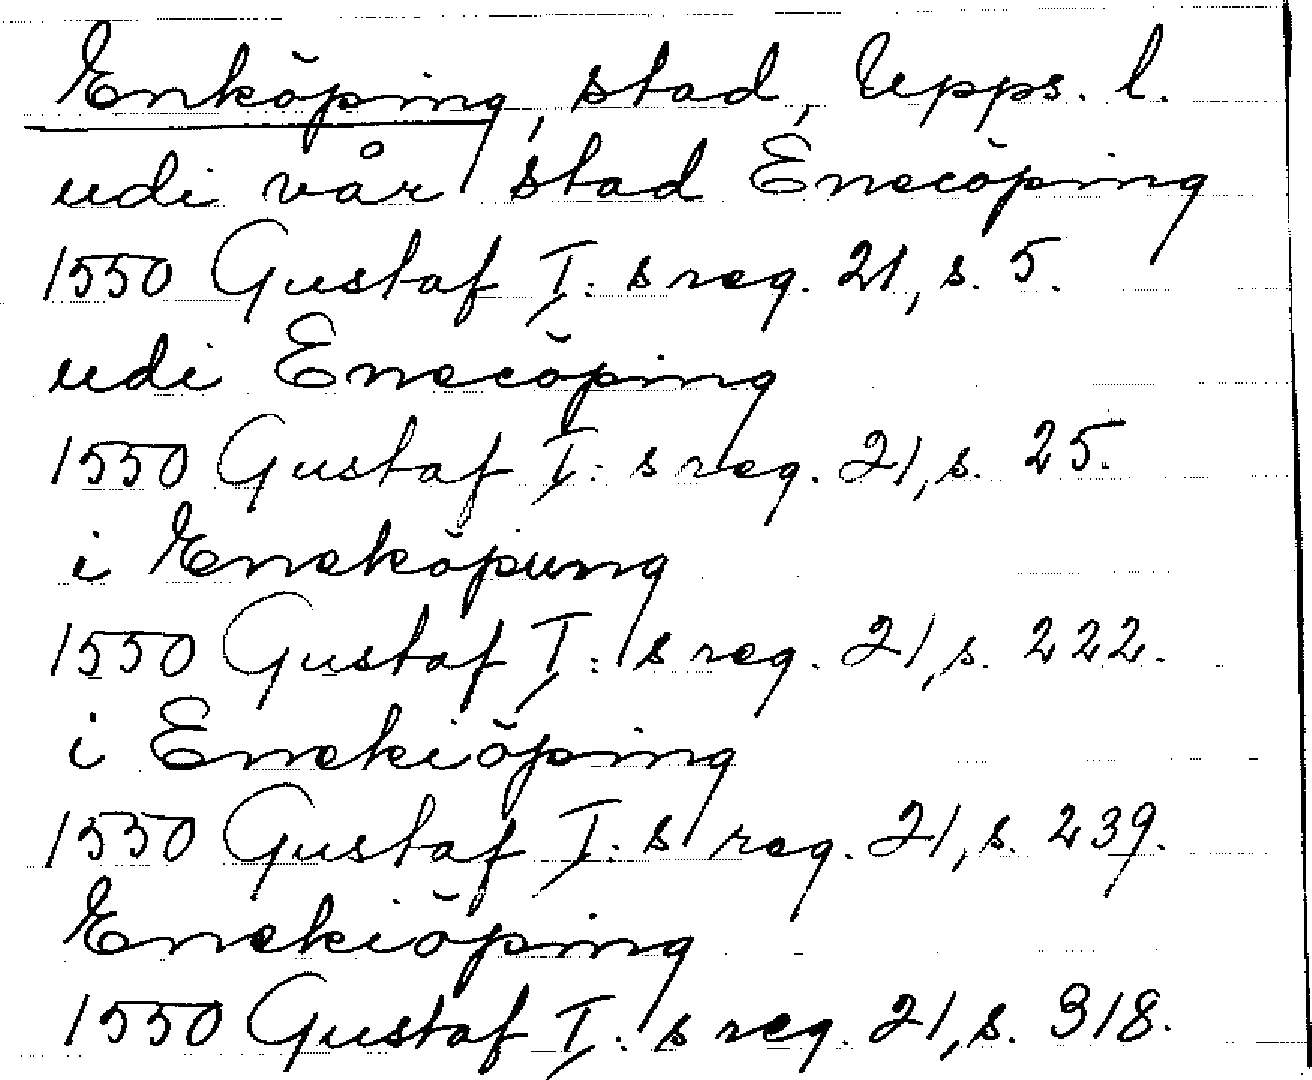 Enköping, stad, Upps. l.
udi vår stad Enecöping
1550 Gustaf I:s reg. 21, s. 5.
udi Enecöping
1550 Gustaf I:s reg. 21, s. 25.
i Eneköpung
1550 Gustaf I:s reg. 21, s. 222.
i Enekiöping
1550 Gustaf I:s reg. 21, s. 239.
Enekiöping
1550 Gustaf I:s reg. 21, s. 318.